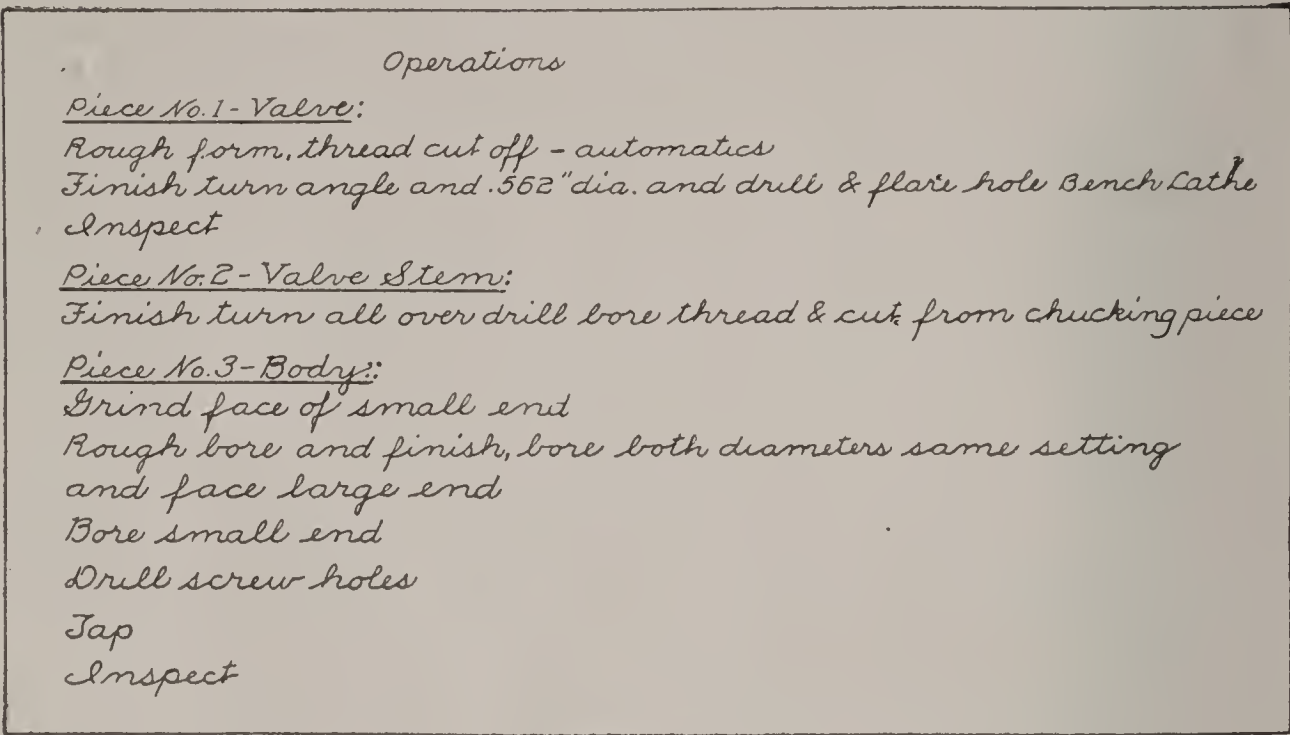 Operations
Piece No. 1 - Valve:
Rough form, thread cut off - automatics
Finish turn angle and .562" dia. and drill & flare hole Bench Lathe
Inspect
Piece No. 2 - Valve Stem:
Finish turn all over drill bore thread & cut from chucking piece
Piece No. 3 - Body::
Grind face of small end
Rough bore and finish, bore both diameters same setting
and face large end
Bore small end
Drill screw holes
Tap
Inspect